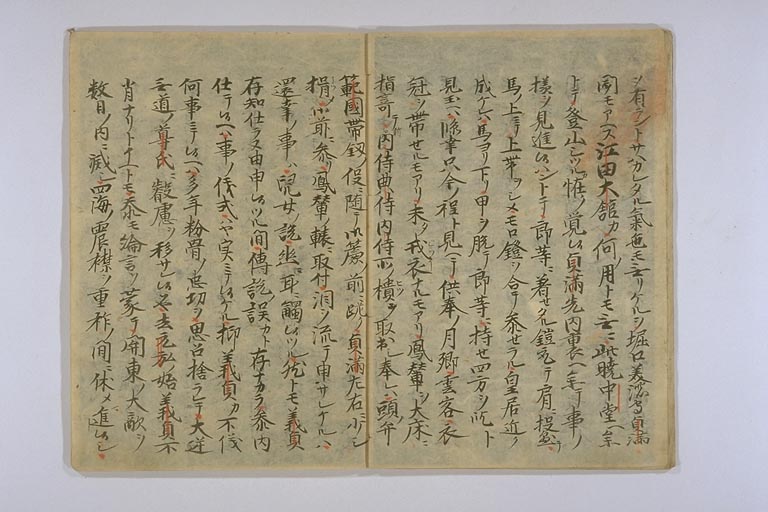 ン有ラントサヽカレタル氣色モ無リケルヲ堀口美濃守貞滿
聞モアヘス江田大舘カ何ノ用トモ無ニ此曉中堂ヘ参
トテ登山シツル恠ク覚ル貞滿先内裏ヘ参テ事ノ
様ヲ見進ヘシトテ郎等ニ着セタル鎧取テ肩ニ投懸
馬ノ上ニテ上帯ヲシメモロ鐙ヲ合テ参セラル皇居近ク
成ケレハ馬ヨリ下リ甲ヲ脱テ郎等ニ持セ四方ヲ屹ト
見玉ヘハ臨幸只今ノ程ト見ヘテ供奉ノ月卿雲客衣
冠ヲ帯セルモアリ未タ戎衣ナルモアリ鳳輦ヲ大床ニ
指寄テ内侍典侍内侍所ノ櫃ヲ取出シ奉レハ頭弁
範國帯釼ノ役ニ随テ御簾ノ前ニ跪ク貞滿左右ニ少シ
揖シテ前ニ参リ鳳輦ノ轅ニ取付涙ヲ流テ申サレケルハ
還幸ノ事ハ兒女ノ説坐ニ耳ニ觸レツレトモ義貞
存知仕ラヌ由申候ツル間傳説ノ誤カト存ナカラ参内
仕テ候ヘハ事ノ儀式ハヤ実ニテ候ケル抑義貞カ不儀
何事ニテ候ヘハ多年粉骨ノ忠功ヲ思召捨ラレテ大逆
無道ノ尊氏ニ叡慮ヲ移サレ候去元弘ノ始義貞不
肖ナリトイヘトモ忝モ綸言ヲ蒙テ関東ノ大敵ヲ
数日ノ内ニ滅シ四海ノ震襟ヲ重祚ノ間ニ休メ進セシ